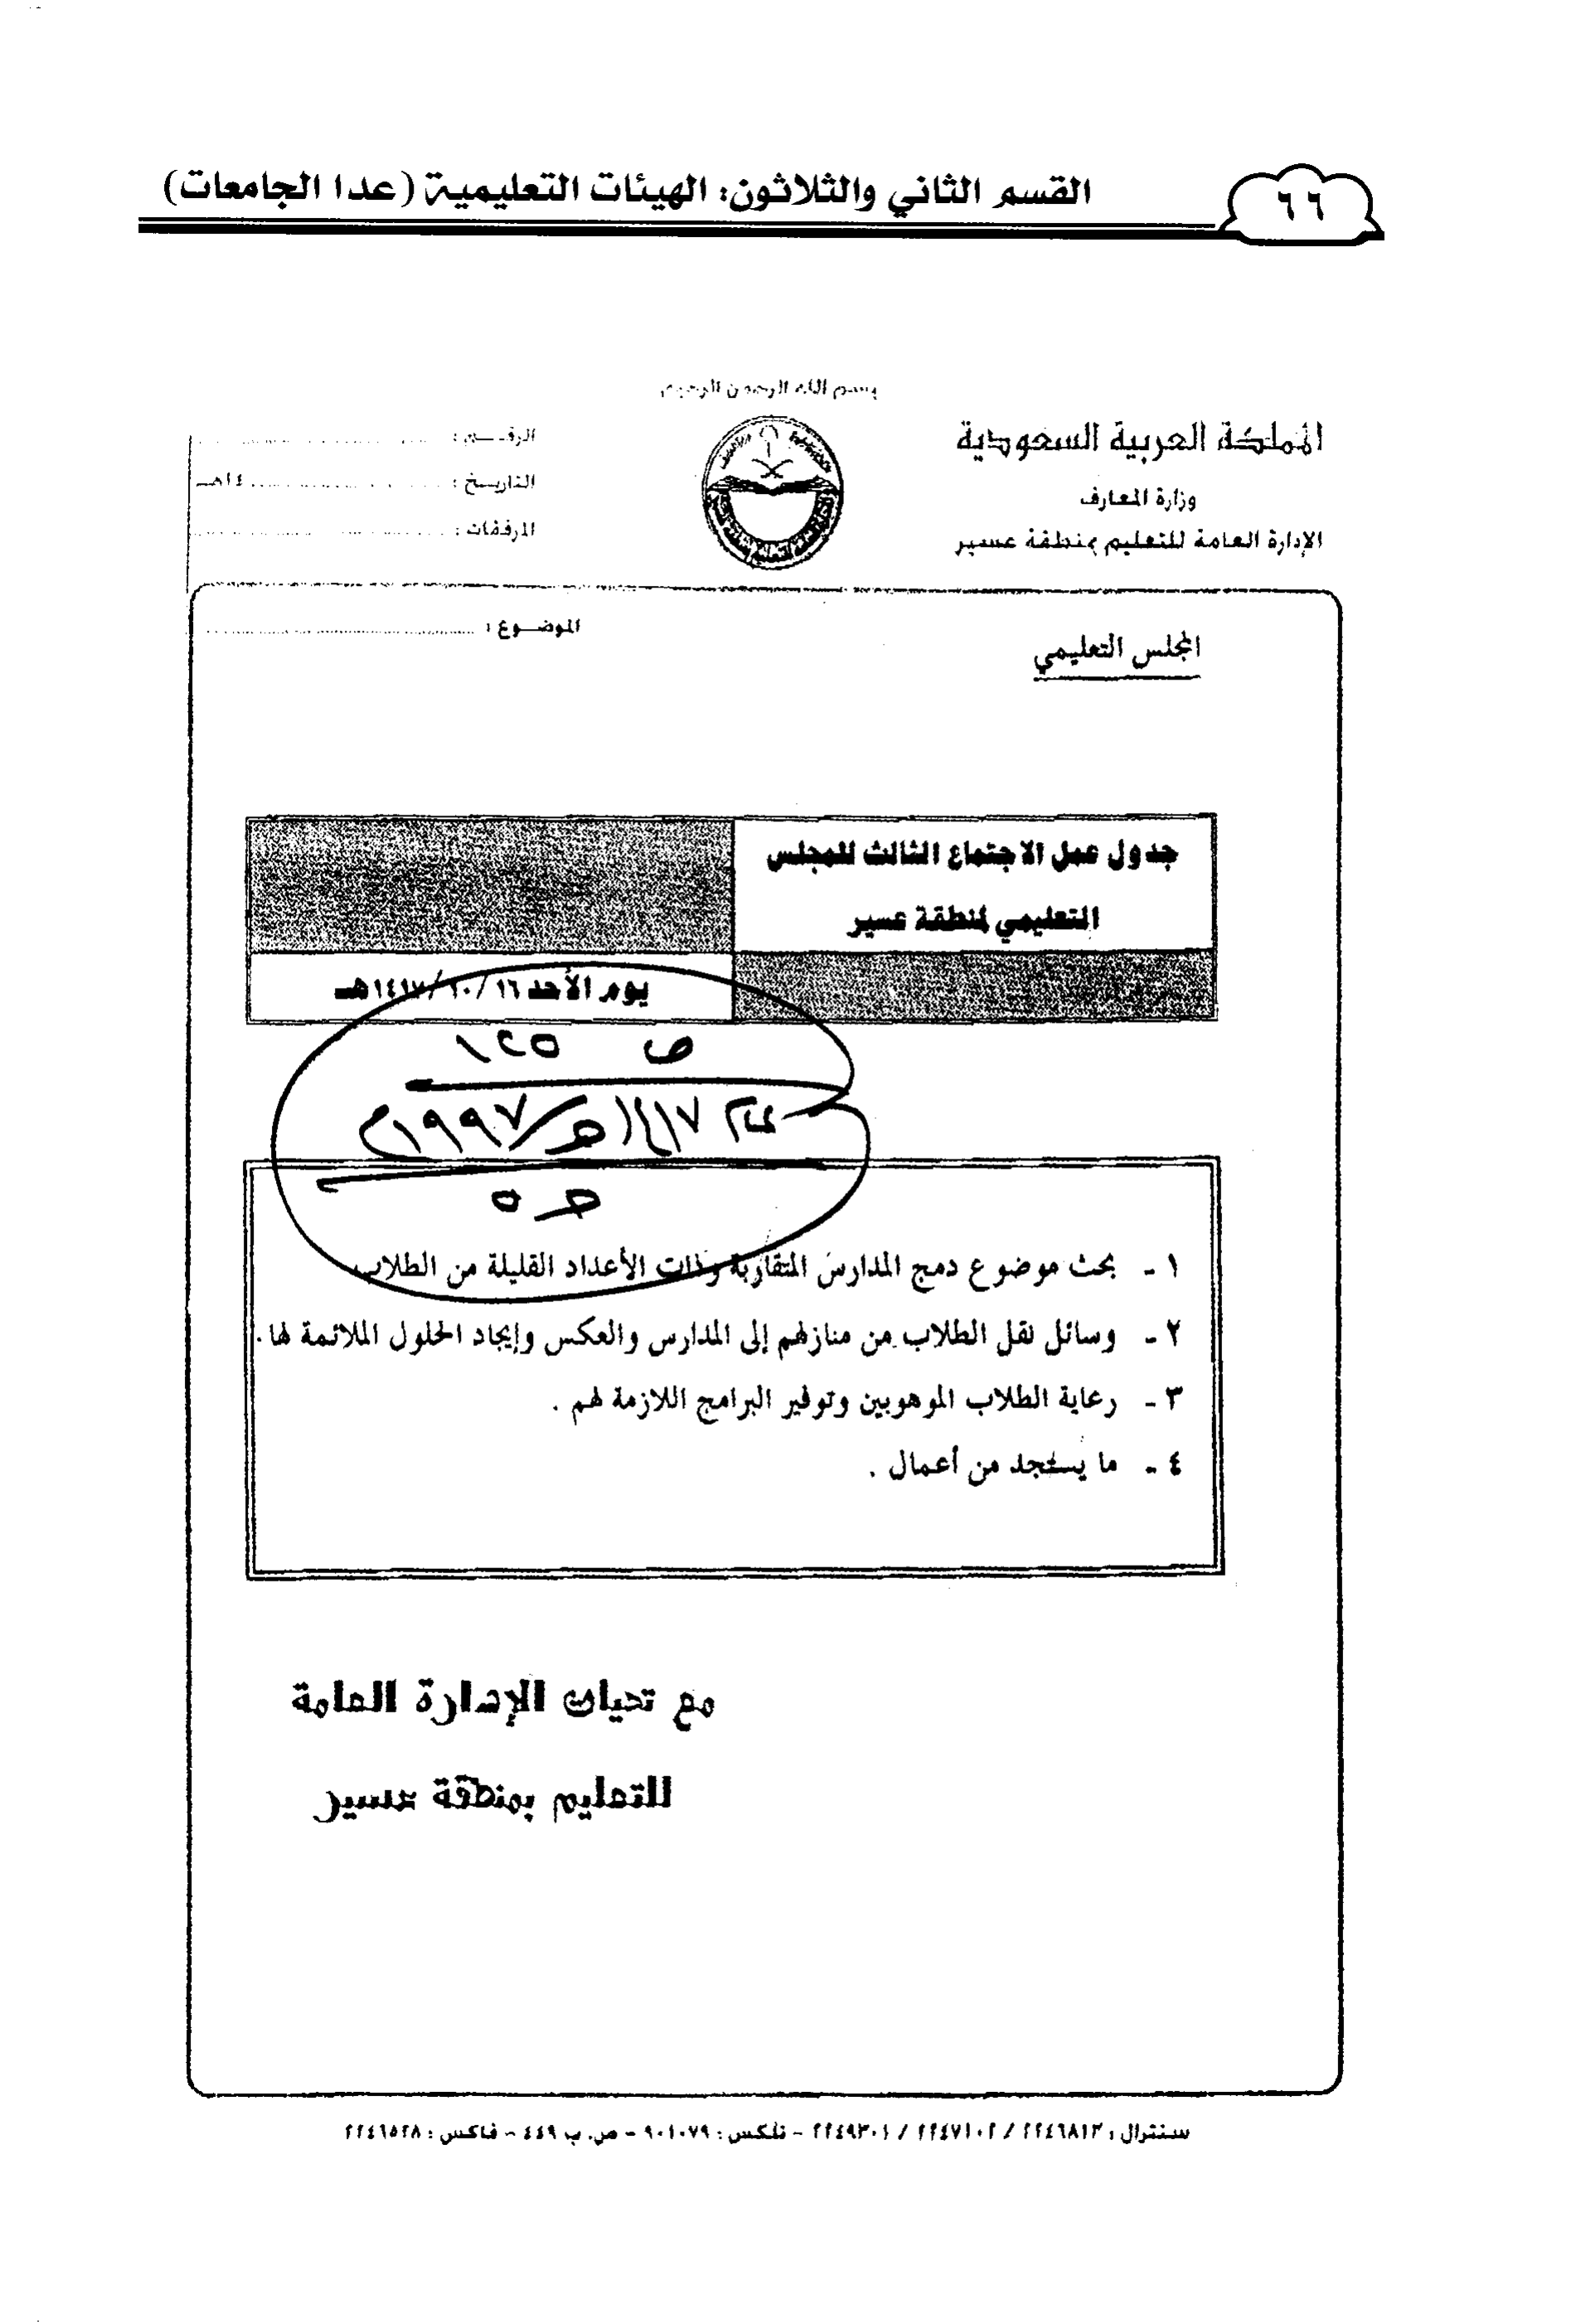 القسم الثاني والثلاثون: الهيئات التعليمية (عدا الجامعات)
٦٦
بسم الله الرحمن الرحيم
المملكة العربية السعودية
وزارة المعارف
الإدارة العامة للتعليم بمنطقة عسير
الرقـــم :
التاريـــخ : ١٤هـ
المرفقات :
الموضـــوع :
المجلس التعليمي
جدول عمل الاجتماع الثالث للمجلس
التعليمي لمنطقة عسير
يوم الأحد ١٦ /١٠/ ١٤١٧هـ
ص ١٢٥
١٤١٧هـ/١٩٩٧م
حـ ٥
١ - بحث موضوع دمج المدارس المتقاربة وذات الأعداد القليلة من الطلاب
٢ - وسائل نقل الطلاب من منازلهم إلى المدارس والعكس وإيجاد الحلول الملائمة لها .
٣ - رعاية الطلاب الموهوبين وتوفير البرامج اللازمة لهم .
٤ - ما يستجد من أعمال .
مع تحيات الإدارة العامة
للتعليم بمنطقة عسير
سنترال : ٢٢٤٦٨١٣ / ٢٢٤٧١٠٢ / ٢٢٤٩٣٠١ – تلكس : ٩٠١٠٧٩ – ص. ب ٤٤٩ – فاكس : ٢٢٤٦٥٢٨